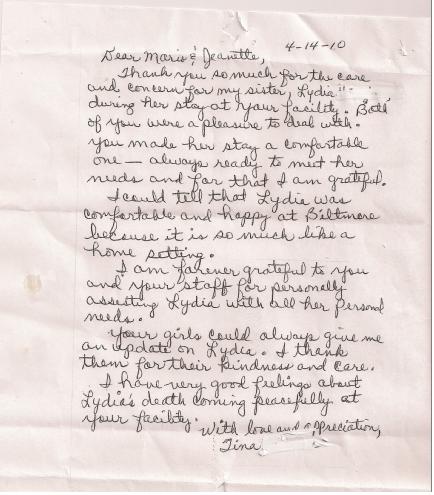 4-14-10
Dear Maris & Jeanette,
Thank you so much for the care
and concern for my sister, Lydia
during her stay at your facility. Both
of you were a pleasure to deal with.
you made her stay a comfortable
one — always ready to meet her
needs and for that I am grateful.
I could tell that Lydia was
comfortable and happy at Biltmore
because it is so much like a
home setting.
I am forever grateful to you
and your staff for personally
assisting Lydia with all her personal
needs.
Your girls could always give me
an update on Lydia. I thank
them for their kindness and care.
I have very good feelings about
Lydia's death coming peacefully at
your facility.
With love and appreciation,
Tina